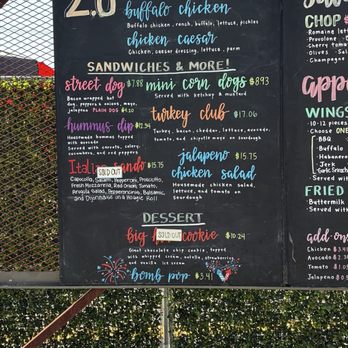 2.0
buffalo chicken
Buffalo chicken, ranch, buffalo, lettuce, pickles
chicken caesar
Chicken, caesar dressing, lettuce, parm
SANDWICHES & MORE!
street dog $7.88
Bacon wrapped hot
dog, peppers & onions, mayo,
jalapeno PLAIN DOG
hummus dip
Handmade hummus topped
with avocado
Served with carrots, celery,
cucumbers, and red peppers
SOLD OUT
$15.75
Capicolla, Salami, Pepperoni, Prosciutto,
Fresh Mozzarella, Red Onion, Tomato,
Arugula Salad, Pepperoncinis, Balsamic,
and Dijonnaise on a Hoagie Roll
mini corn dogs $8.93
Served with ketchup & mustard
turkey club $17.06
Turkey, bacon, cheddar, lettuce, avocado,
tomato, and chipotle mayo on Sourdough
jalapeño $15.75
chicken salad
Housemade chicken salad,
lettuce, and tomato on
Sourdough
DESSERT
big
SOLD OUT
cookie $10.24
Giant chocolate chip cookie, topped
with whipped cream, nutella, strawberries,
and vanilla ice cream
bomb pop $3.41
CHOP
Romaine lett
Provolone
Cherry toma
Olives Sala
Champagn
app
WINGS
10-12 pieces
Choose ONE
BBQ
Buffalo
Habanero
Jerk
Served wi
FRIED
Butterm
Served
add-on
Chicken $3
Avocado $2
Tomato $1.0
Jalapeno